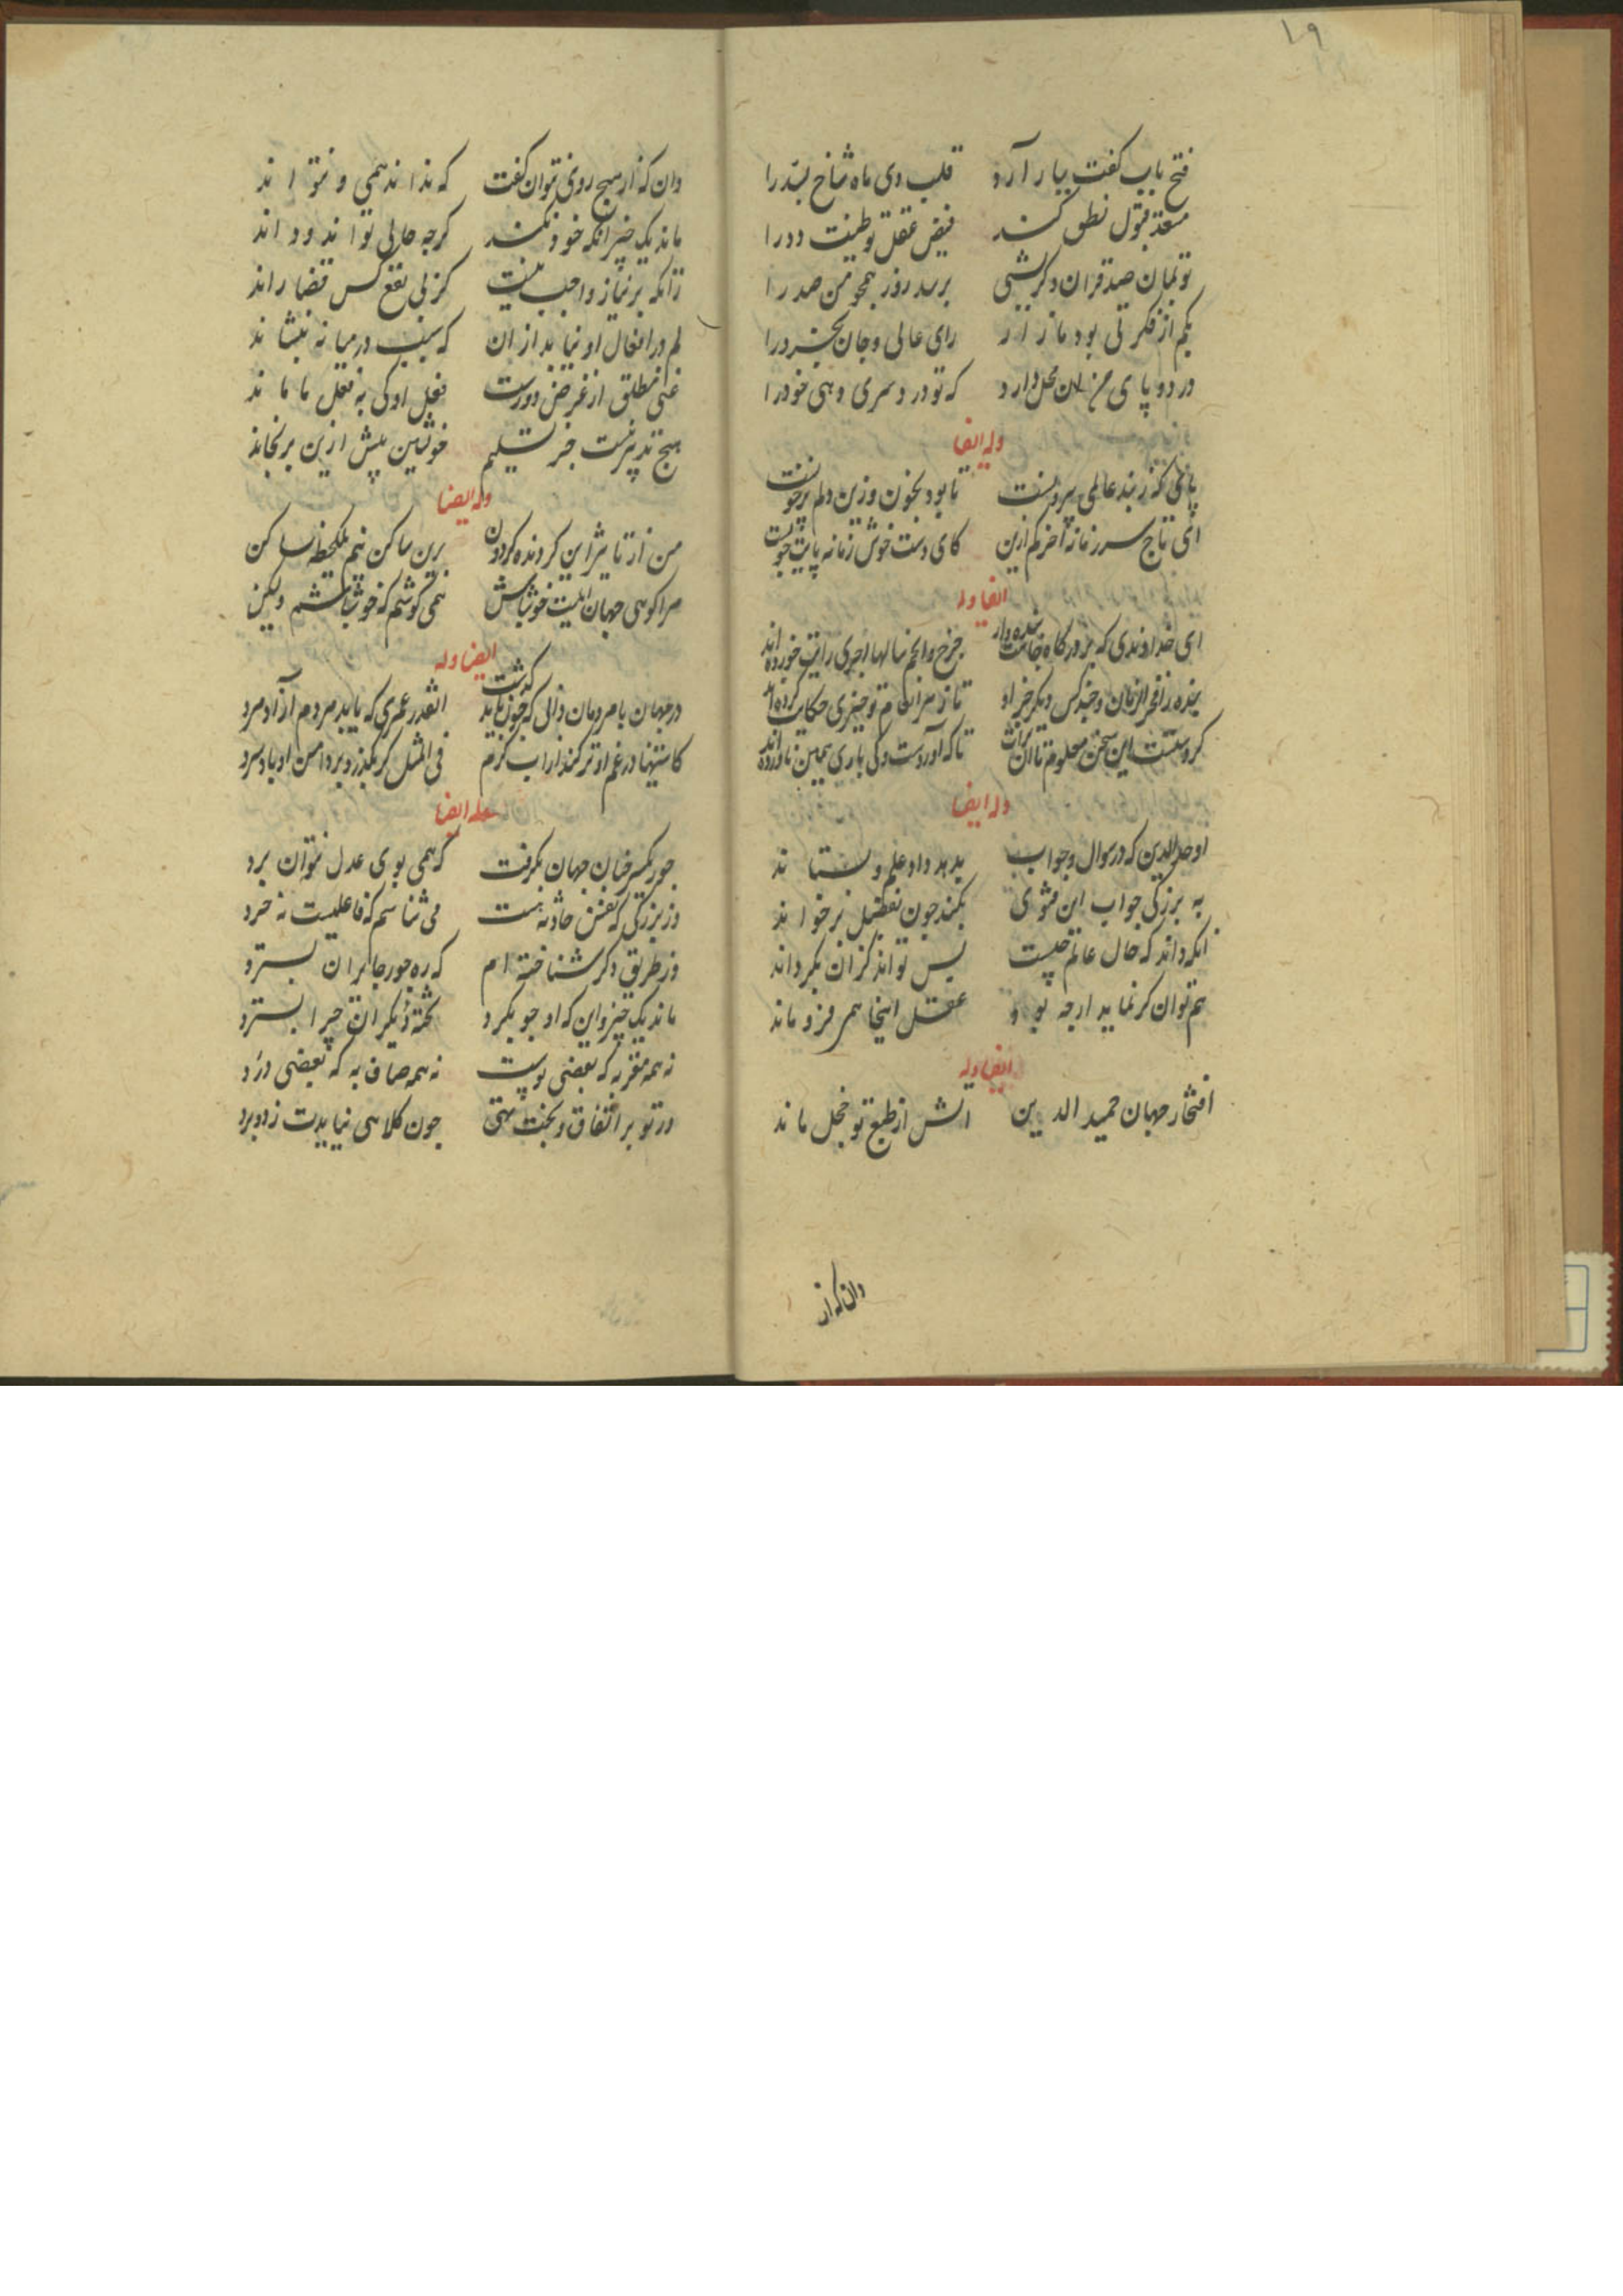 ۱۹
فتح باب کفت بیار آرد قلب دی ماه شاخ بسّد را
مستعد قبول نطق کند فیض عقل تو طینت دد را
تو بمان صد قران و کر شبی برسد روز همچو من صد را
بکم از فکرتی بود مازار رای عالی و جان بخرد را
درد و پای من دارد که تو درد سری دهی خود را
وله ایضا
پایی که ز بند عالمی بیرونست تا بود بخون وزین دلم پر خونست
ای تاج سر زمانه اخر کم ازین کای دست خوش زمانه پایت چونست
ایضا وله
ای خداوندی که بر درکاه جاهت بنده وار چرخ و انجم سالها اجری و راتب خورده اند
بنده را فخر الزمان و چند کس دیکر جز او تازه از انعام تو چیزی حکایت کرده اند
کر درستست این سخن معلوم تا ان برات تا که آوردست و کی باری بمن ناورده اند
وله ایضا
اوحد الدین که در سوال و جواب بدهد داد علم و بستاند
به بزرکی جواب این فتوی بکند چون بفضل برخواند
انکه داند که حال عالم چیست پس تواند کزان بکرداند
هم توان کر نماید ارچه بود عقل اینجا همی فرو ماند
ایضا وله
افتخار جهان حمید الدین اتش از طبع تو خجل ماند
وان که از
وان که از هیچ روی نتوان کفت که نداند همی و نتواند
ماند یک چیز آنکه خود نکند کرچه حالی تواند و داند
زانکه بر بی نیاز واجب نیست کز پی نفع کس قضا راند
لم در افعال او نیاید از ان که سبب در میانه بنشاند
غنی مطلق از غرض دورست فعل او کی به فعل ما ماند
هیچ تدبیر نیست جز تسلیم خویشتن بیش ازین برنجاند
وله ایضا
من از تاثیر این کردنده کردون برین ساکن نیم یکلحظه ساکن
مرا کوئی جهان اینست خوش باش همی کوشم که خوش باشم ولیکن
ایضا وله
در جهان با مردمان دانی که چون باید کذشت انقدر عمری که یابد مردم آزاد مرد
کاستینها در غم او تر کنند از اب کرم فی المثل کر بکذرد بر دامن او باد سرد
وله ایضا
جور یکسر جهان جهان بکرفت که همی بوی عدل نتوان برد
وز بزرکی که نفس حادثه هست می شناسم که فاعلیست نه خرد
وز طریق دکر شناخته ام که ره جور جابران بسترد
ماند یک چیز و این که او جو بکرد تخته دیکران چرا بسترد
نه همه مغز به که بعضی پوست نه همه صاف به که بعضی درد
در تو بر اتفاق و بخت نهی چون کلاهی نیایدت زد و برد